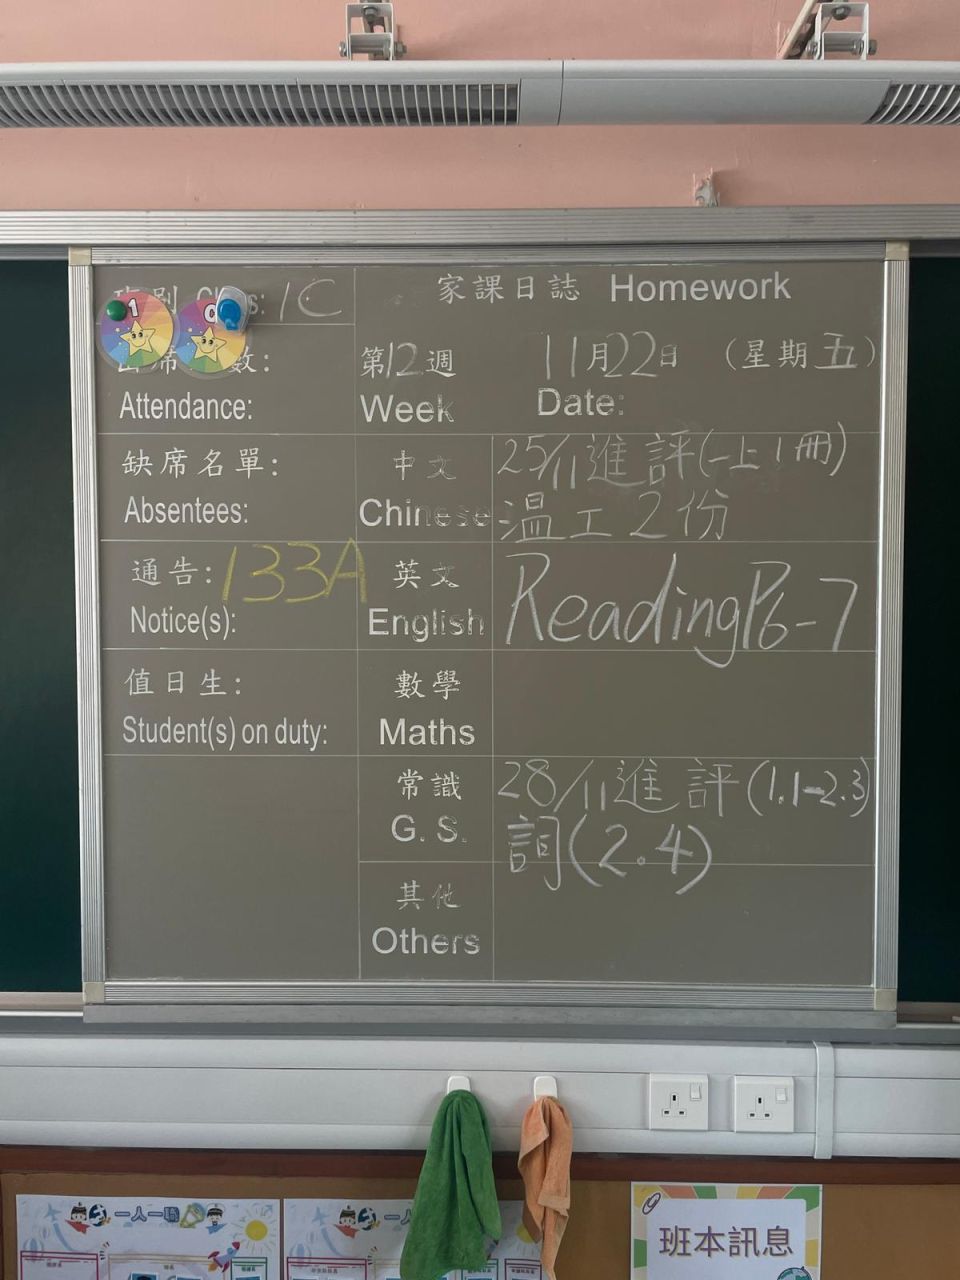 1C
家課日誌 Homework
數:
Attendance:
第12週 11月22日 (星期五)
Week Date:
缺席名單:
Absentees:
中文
Chinese
25/11進評(一上1冊)
溫工2份
通告: 133A
Notice(s):
英文
English
Reading P6-7
值日生:
Student(s) on duty:
數學
Maths
常識
G. S.
28/11進評(1.1-2.3)
詞(2.4)
其他
Others
一人一職
一人一
班本訊息